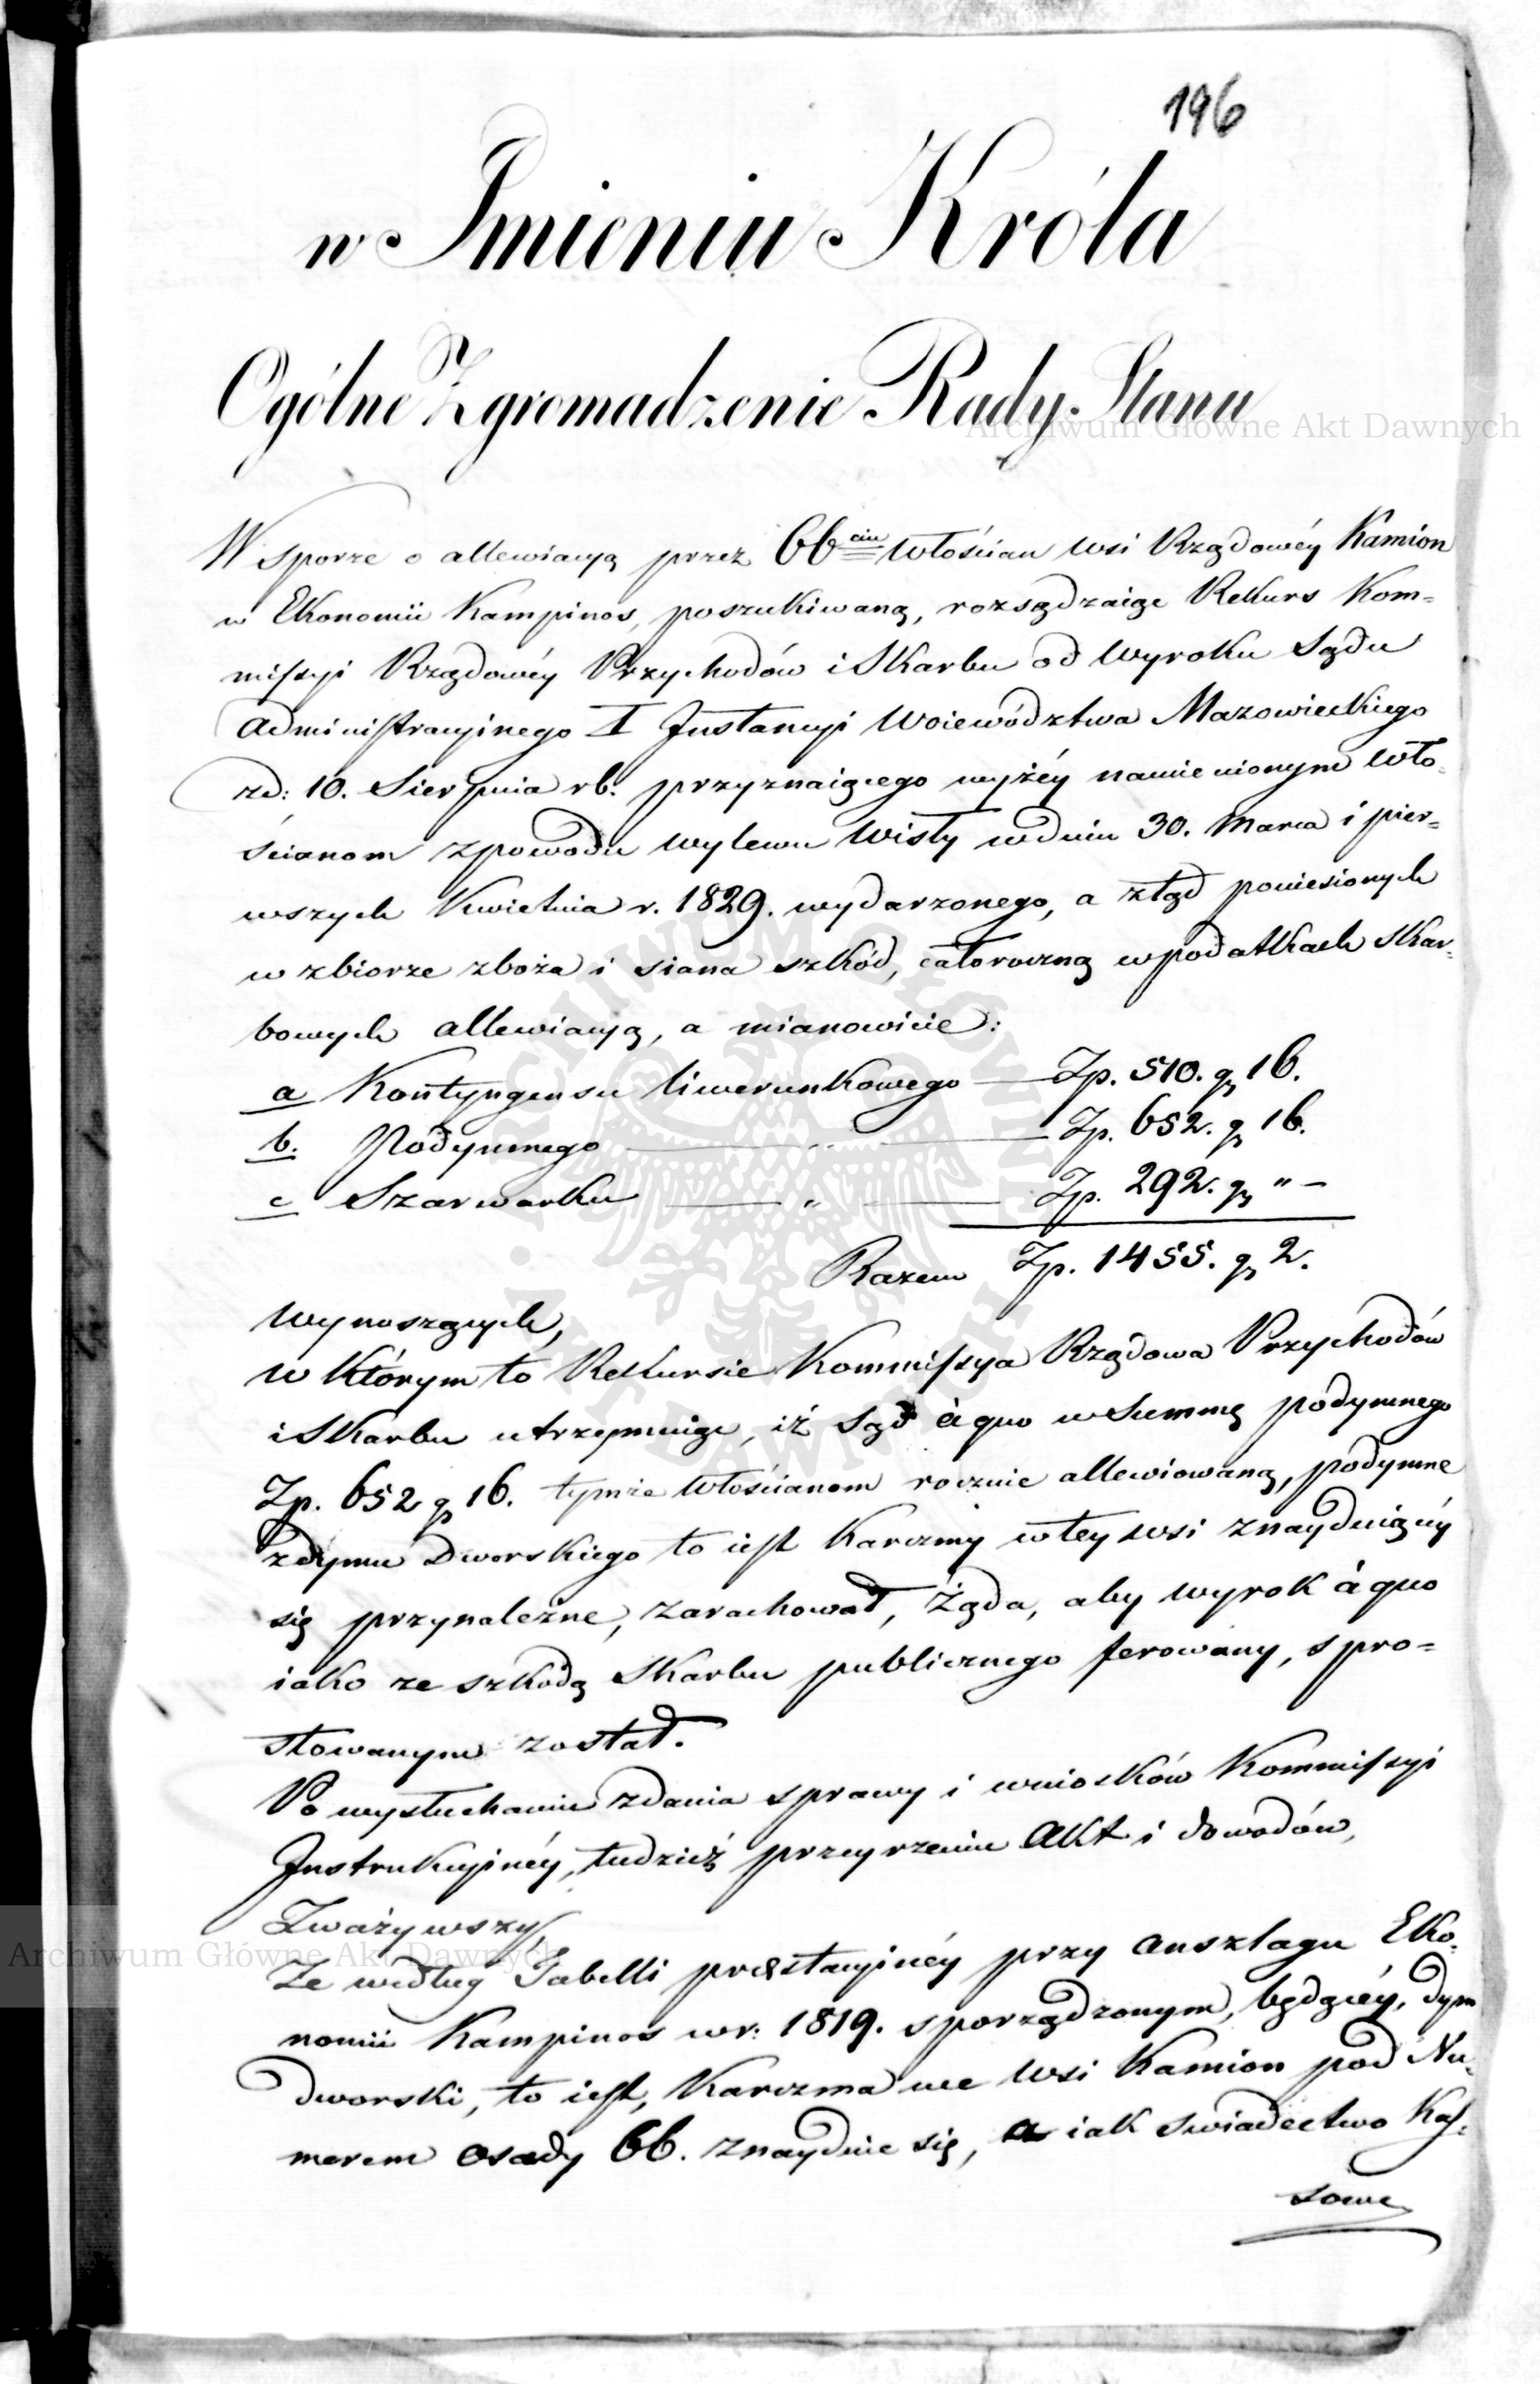 196
w Imieniu Króla
Ogólne Zgromadzenie Rady Stanu
W sporze o allewiacyą przez 66ciu Włościan wsi Rządowéy Kamion
w Ekonomii Kampinos, poszukiwaną, rozsądzaiąc Rekurs Kom=
missyi Rządowéy Przychodów i Skarbu od Wyroku Sądu
Administracyinego I Instancyi Woiewództwa Mazowieckiego
zd: 10. Sierpnia rb. przyznaiącego wyżéy namienionym Wło=
ścianom z powodu wylewu Wisły w dniu 30. Marca i pier=
wszych Kwietnia r. 1829. wydarzonego, a ztąd poniesionych
w zbiorze zboża i siana szkód, całoroczną w podatkach Skar=
bowych allewiacyą, a mianowicie:
a Kontyngensu liwerunkowego — Zp. 510. gr 16.
b. Podymnego — „ — Zp. 652. gr 16.
c Szarwarku — „ — Zp. 292. gr „ —
Razem Zp. 1455. gr 2.
wynoszących,
w którym to Rekursie Kommissya Rządowa Przychodów
i Skarbu utrzymuiąc, iż Sąd à quo w Summę podymnego
Zp. 652 gr 16. tymże Włościanom rocznie allewiowaną, podymne
z dymu Dworskiego to iest Karczmy w tey wsi znayduiącéy
się przynależne, zarachował, Żąda, aby wyrok à quo
iako ze szkodą Skarbu publicznego ferowany, spro=
stowanym został.
Po wysłuchaniu zdania sprawy i wniosków Kommissyi
Instrukcyinéy, tudzież przeyrzeniu Akt i dowodów,
Zważywszy,
Że według Tabelli præstacyinéy przy Anszlagu Eko=
nomii Kampinos w r: 1819. sporządzonym, będącéy, dym
Dworski, to iest, Karczma we wsi Kamion pod Nu=
merem osady 66. znayduie się, a iak Swiadectwo Kas=
sowe
Archiwum Główne Akt Dawnych
Archiwum Główne Akt Dawnych
ARCHIWUM GŁÓWNE AKT DAWNYCH